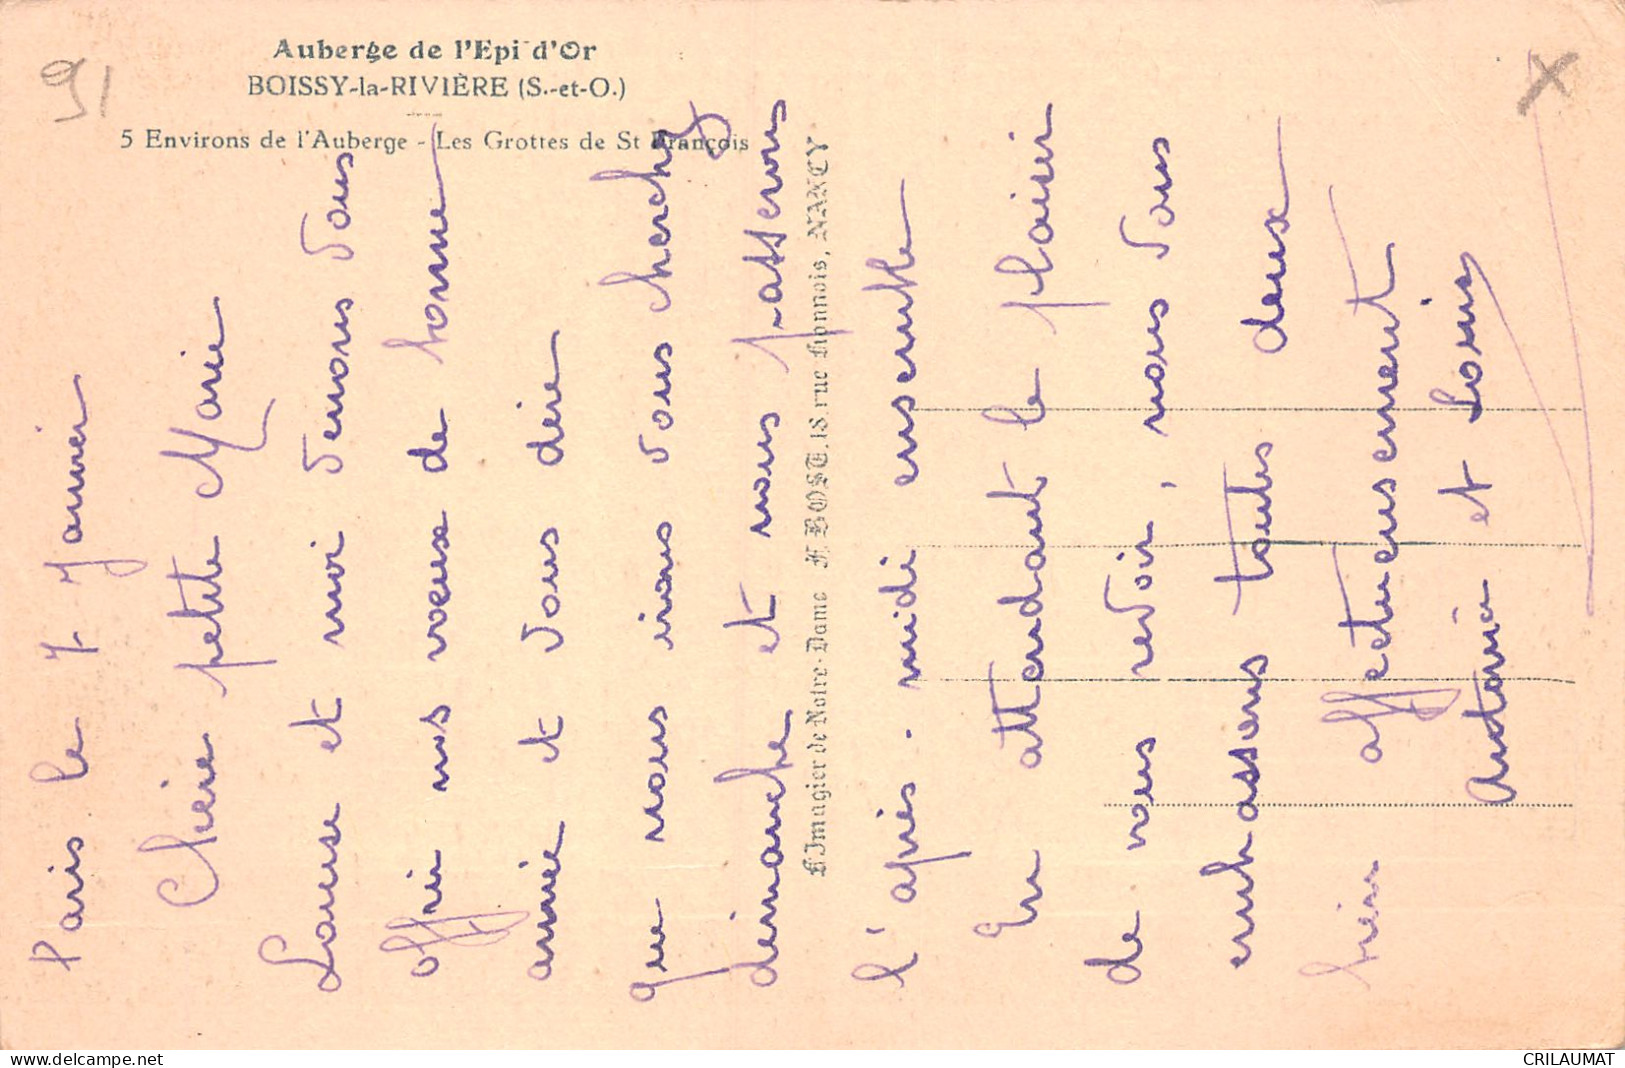 Auberge de l'Epi d'Or
BOISSY-la-RIVIÈRE (S.-et-O.)
5 Environs de l'Auberge - Les Grottes de St François
91
X
L'Imagier de Notre-Dame F. BOST, 18, rue Lionnois, NANCY
Paris le 7 Janvier
Chère petite Marie
Louise et moi venons vous
offrir nos voeux de bonne
année et vous dire
que nous irons vous chercher
dimanche et nous passerons
l'après-midi ensemble
En attendant le plaisir
de vous revoir, nous vous
embrassons toutes deux
bien affectueusement
Antonia et Louis
delcampe.net
CRILAUMAT